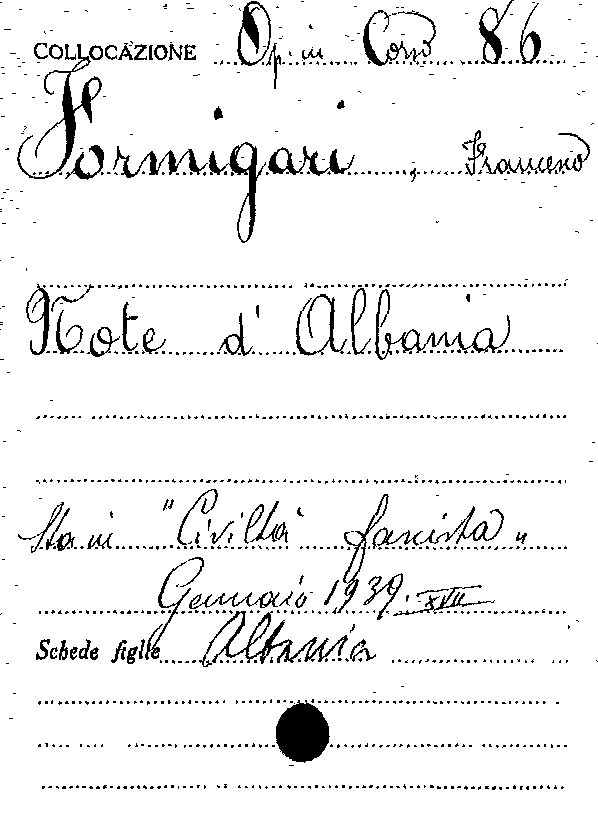 COLLOCAZIONE Op. in Corso 86
Formigari, Francesco
Note d' Albania
Sta in "Civiltà fascista"
Gennaio 1939. XVII
Schede figlie Albania